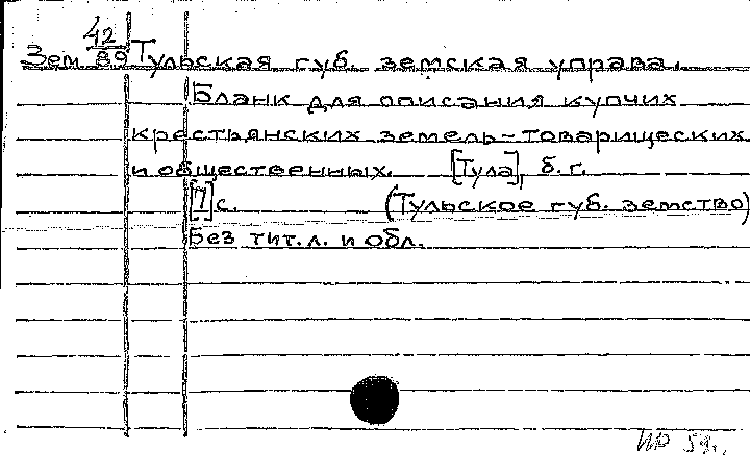 42
Зем 89 Тульская губ. земская управа.
Бланк для описания купчих
крестьянских земель-товарищеских
и общественных. [Тула], б. г.
[7] с. (Тульское губ. земство)
Без тит. л. и обл.